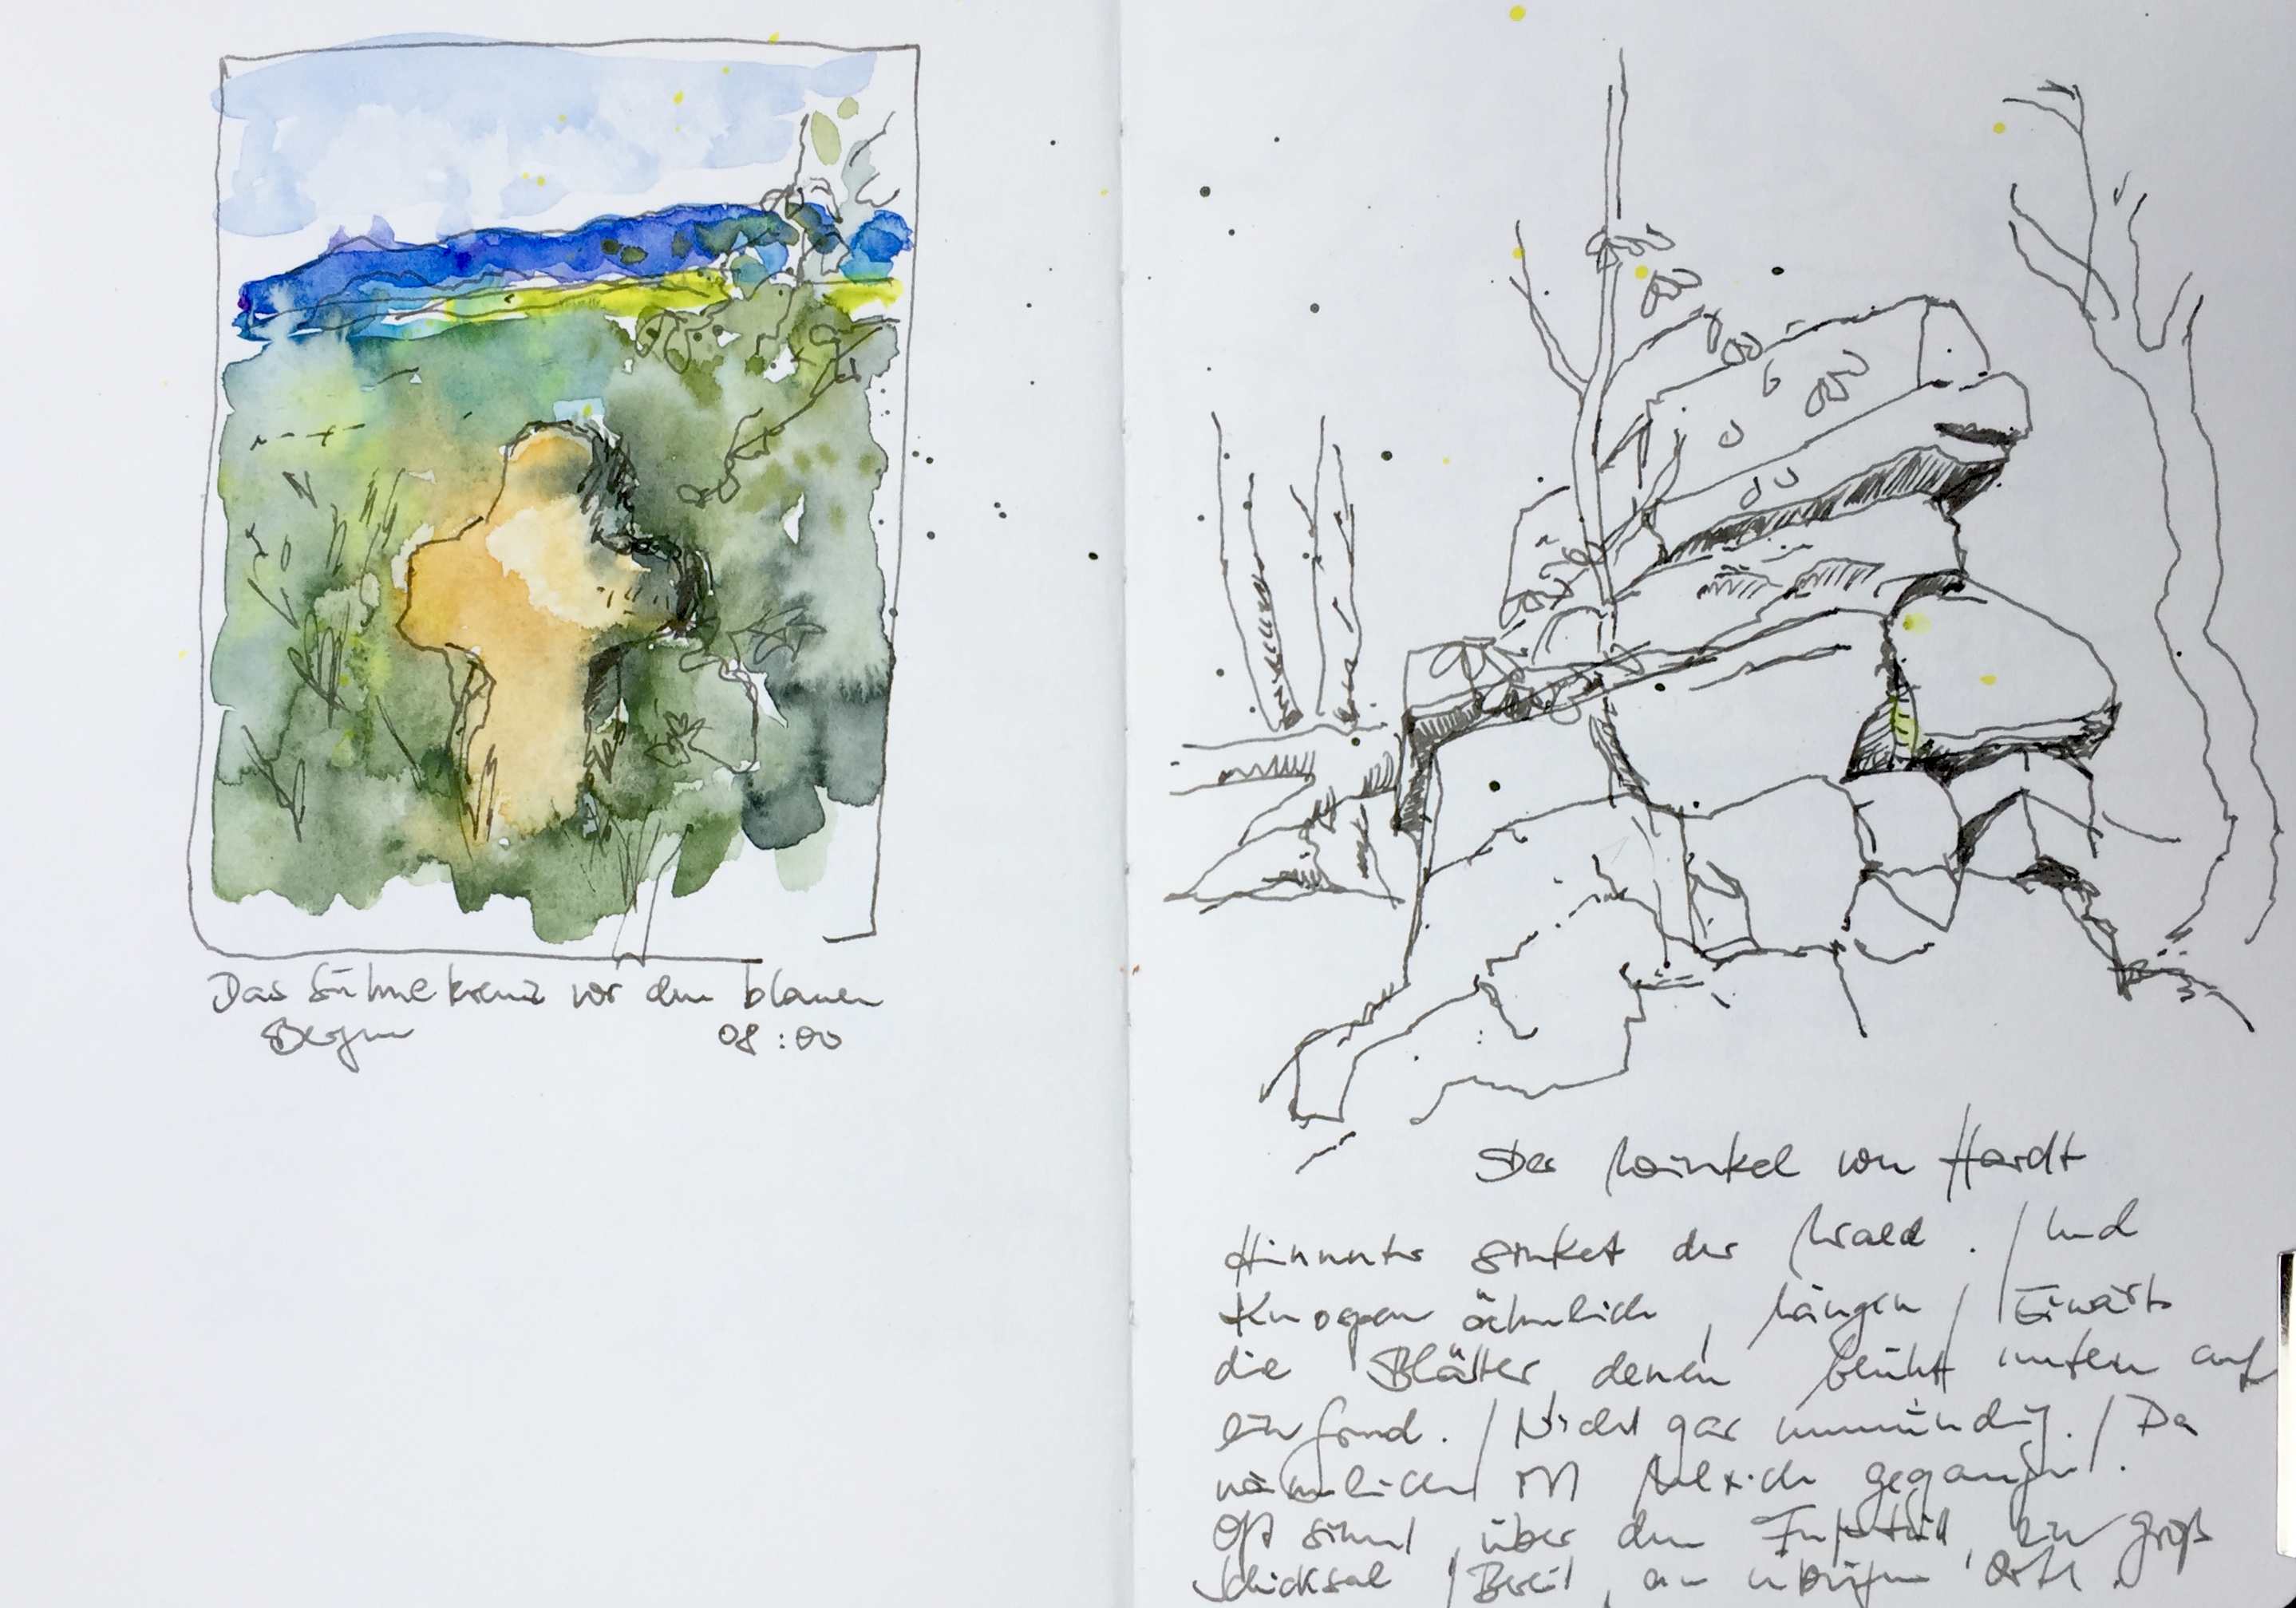 Das Sühnekreuz vor den blauen
Bergen 08:00
Der Winkel von Hardt
Hinunter sinket der Wald. / Und
Knospen ähnlich, hängen / Einwärts
die Blätter, denen / blüht unten auf
ein Grund. / Nicht gar unmündig. / Da
nämlich ist Ulrich gegangen.
Oft sinnt, über den Fußtritt, ein groß
Schicksal / Bereit, an übrigem Orte.